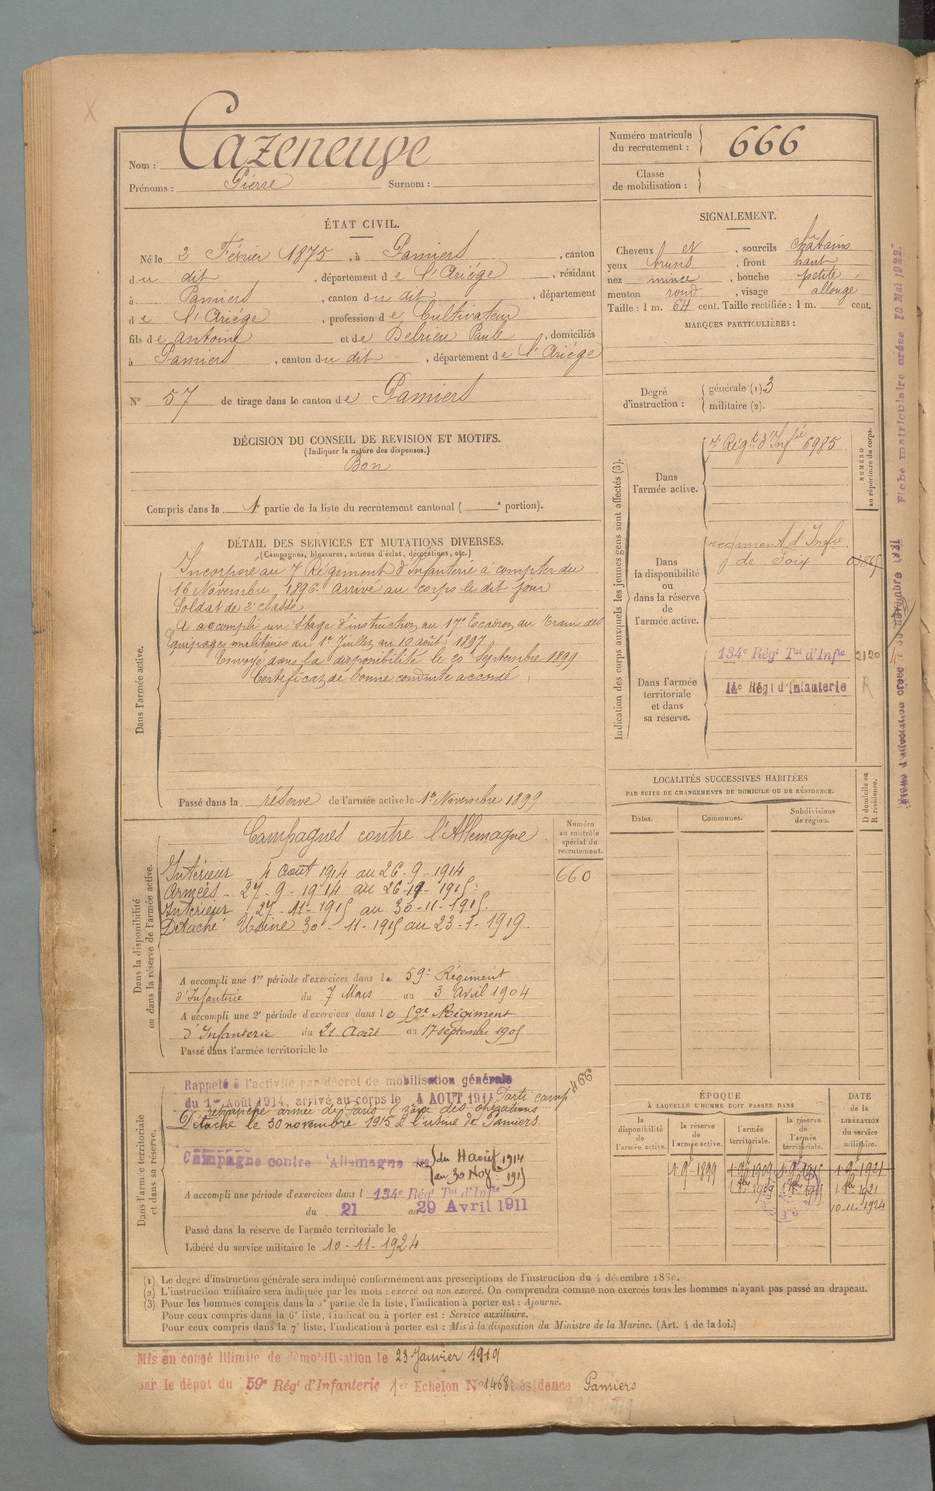 Nom : Cazeneuve
Prénoms : Pierre Surnom :
Numéro matricule du recrutement : 666
Classe de mobilisation :
ÉTAT CIVIL.
Né le 2 Février 1875, à Pamiers, canton
du dit, département de l'Ariège, résidant
à Pamiers, canton du dit, département
de l'Ariège, profession de Cultivateur
fils de Antoine et de Delrieu Paule, domiciliés
à Pamiers, canton du dit, département de l'Ariège
N° 57 de tirage dans le canton de Pamiers
SIGNALEMENT.
Cheveux et, sourcils châtains
yeux bruns, front haut
nez mince, bouche petite,
menton rond, visage allongé
Taille : 1 m. 64 cent. Taille rectifiée : 1 m. cent.
MARQUES PARTICULIÈRES :
Degré d'instruction : générale (1). 3
militaire (2).
DÉCISION DU CONSEIL DE REVISION ET MOTIFS.
(Indiquer la nature des dispenses.)
Bon
Compris dans la 1e partie de la liste du recrutement cantonal ( e portion).
DÉTAIL DES SERVICES ET MUTATIONS DIVERSES.
(Campagnes, blessures, actions d'éclat, décorations, etc.)
Dans l'armée active.
Incorporé au 7 Régiment d'Infanterie à compter du
16 Novembre 1896. Arrivé au corps le dit jour
Soldat de 2e classe
A accompli un stage d'instruction au 17e Escadron du Train des
Equipages militaires du 1er Juillet au 10 août 1897
Envoyé dans la disponibilité le 20 Septembre 1899
Certificat de bonne conduite accordé.
Passé dans la réserve de l'armée active le 1er Novembre 1899
Indication des corps auxquels les jeunes gens sont affectés (3).
NUMÉRO au répertoire du corps.
Dans l'armée active.
7 Régt d'Infie 6985
Dans la disponibilité ou dans la réserve de l'armée active.
régiment d'Infie
de Foix
Dans l'armée territoriale et dans sa réserve.
134e Régt Tal d'Infie 2120
14e Régt d'Infanterie R
LOCALITÉS SUCCESSIVES HABITÉES
PAR SUITE DE CHANGEMENTS DE DOMICILE OU DE RÉSIDENCE.
D domicile ou R résidence.
Dates. Communes. Subdivisions de région.
Dans la disponibilité ou dans la réserve de l'armée active.
Numéro au contrôle spécial du recrutement.
660
Campagnes contre l'Allemagne
Intérieur 4 août 1914 au 26-9-1914
Armées - 27-9-1914 au 26-11-1915
Intérieur 27-11-1915 au 30-11-1915
Détaché Usine 30-11-1915 au 23-1-1919.
A accompli une 1re période d'exercices dans le 59e Régiment
d'Infanterie du 7 Mars au 3 Avril 1904
A accompli une 2e période d'exercices dans le 59e Régiment
d'Infanterie du 21 Août au 17 septembre 1905
Passé dans l'armée territoriale le
Dans l'armée territoriale et dans sa réserve.
Rappelé à l'activité par décret de mobilisation générale
du 1er Août 1914, arrivé au corps le 4 AOUT 1914 Parti camp
retranché armée de Paris zone des opérations
Détaché le 30 novembre 1915 à l'usine de Pamiers
Campagne contre l'Allemagne
du 4 août 1914
au 30 Nov 1915
A accompli une période d'exercices dans l 134e Régt Tal d'Infie
du 21 au 29 Avril 1911
Passé dans la réserve de l'armée territoriale le
Libéré du service militaire le 10-11-1924
ÉPOQUE
À LAQUELLE L'HOMME DOIT PASSER DANS
DATE de la LIBÉRATION du service militaire.
la disponibilité de l'armée active. la réserve de l'armée active. l'armée territoriale. la réserve de l'armée territoriale.
1-9bre-1899
10-11-1924
(1) Le degré d'instruction générale sera indiqué conformément aux prescriptions de l'instruction du 4 décembre 1889.
(2) L'instruction militaire sera indiquée par les mots : exercé ou non exercé. On comprendra comme non exercés tous les hommes n'ayant pas passé au drapeau.
(3) Pour les hommes compris dans la 5e partie de la liste, l'indication à porter est : Ajourné.
Pour ceux compris dans la 6e liste, l'indication à porter est : Service auxiliaire.
Pour ceux compris dans la 7e liste, l'indication à porter est : Mis à la disposition du Ministre de la Marine. (Art. 4 de la loi.)
Mis en congé illimité de démobilisation le 23 Janvier 1919
par le dépôt du 59e Régt d'Infanterie 1er Echelon N° 1468 résidence Pamiers
Fiche matriculaire créée 10 Mai 1922.